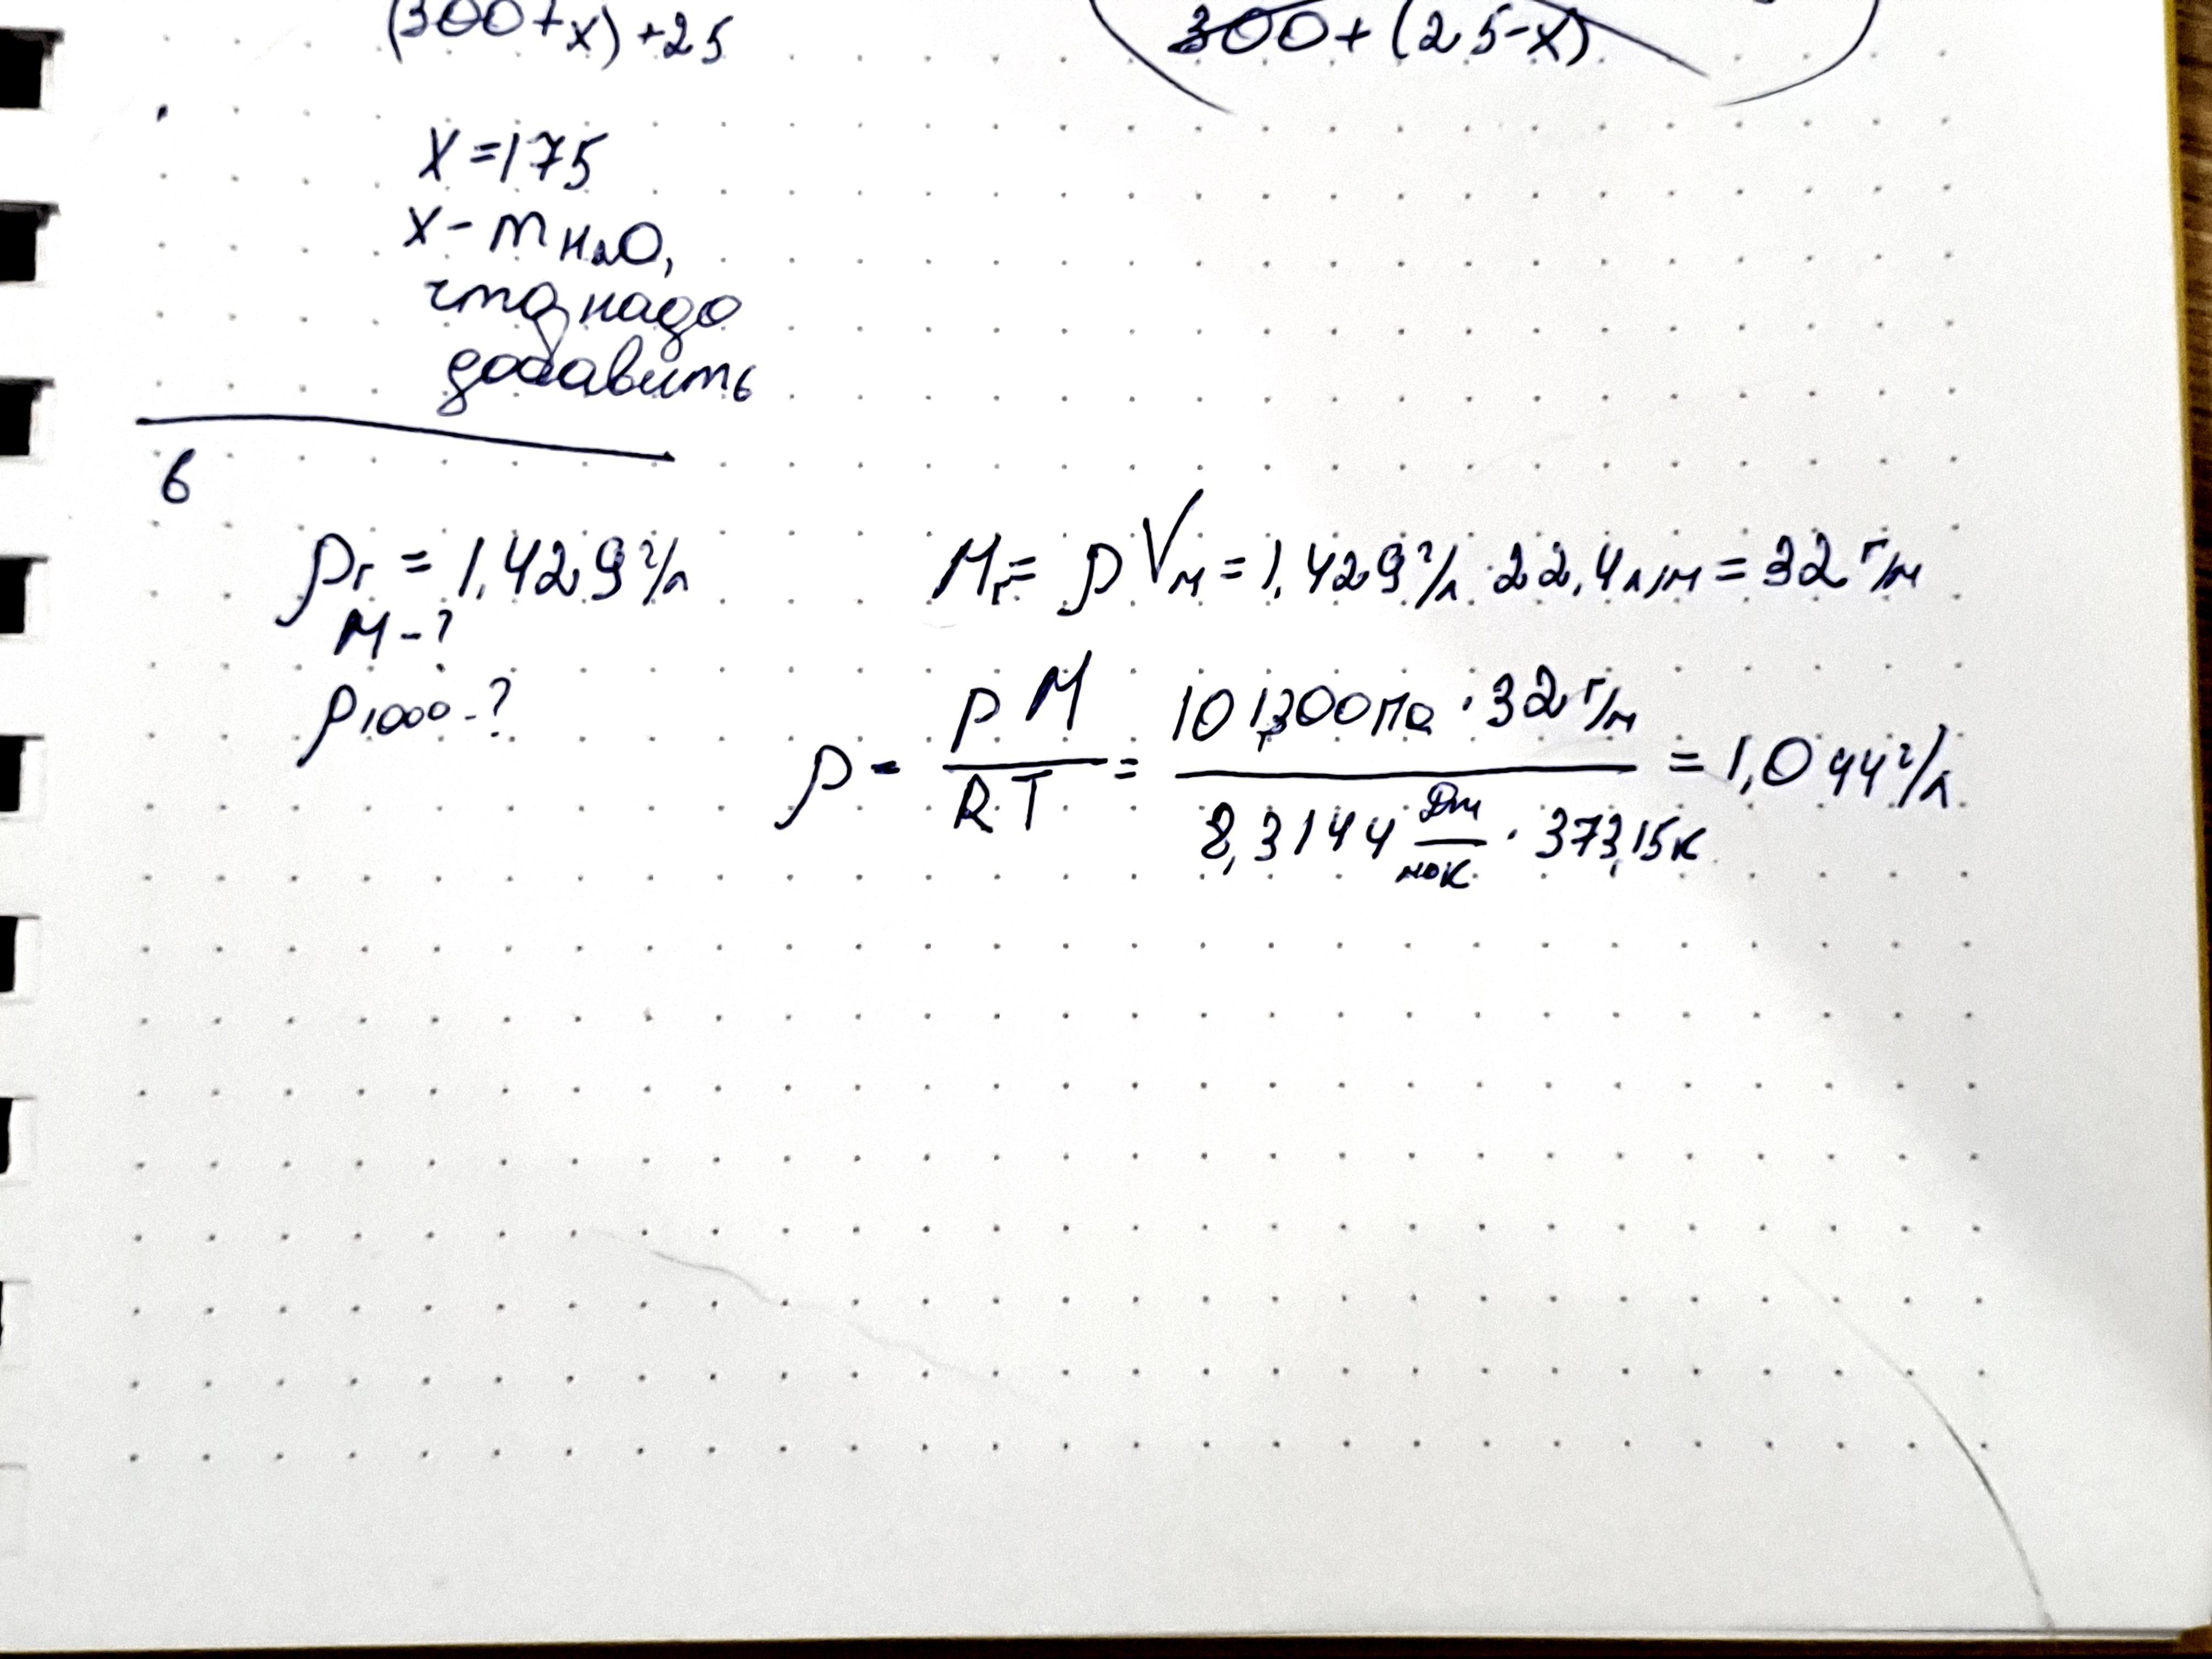 (300+x)+25
300+(25-x)
x=175
x - m H₂O,
что надо
добавить
6
ρг = 1,429 г/л
M - ?
ρ100° - ?
Mг = ρ Vм = 1,429 г/л · 22,4 л/м = 32 г/м
ρ = pM/RT = 101300 Па · 32 г/м / 8,3144 Дж/мок · 373,15 К = 1,044 г/л